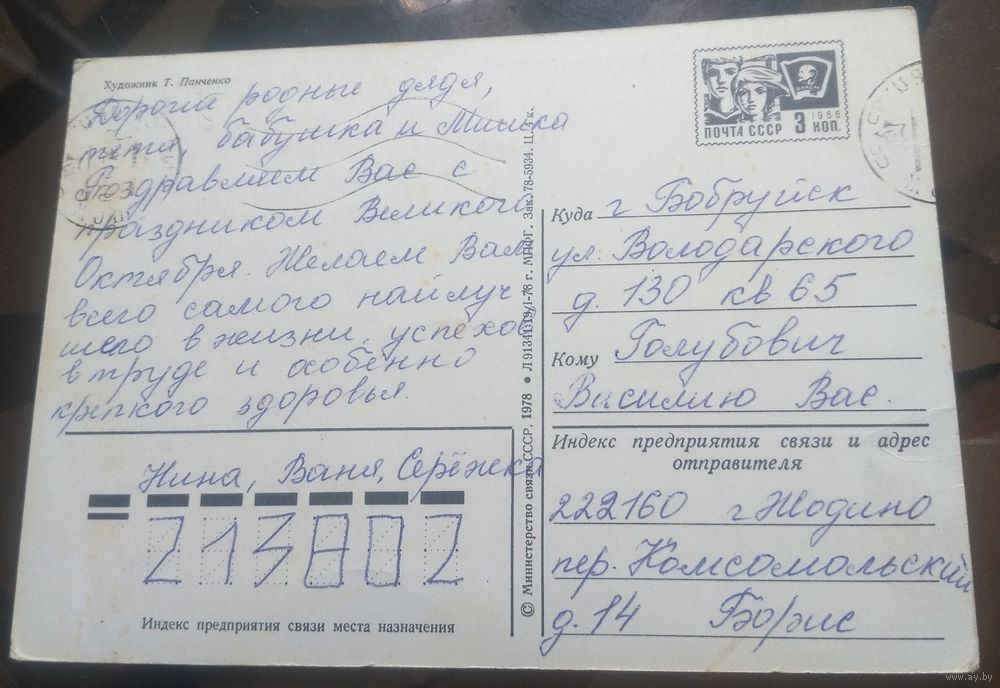 Художник Т. Панченко
Дорогие родные дядя,
тётя, бабушка и Мишка
Поздравляем Вас с
праздником Великого
Октября. Желаем Вам
всего самого наилуч
шего в жизни, успехов
в труде и особенно
крепкого здоровья.
Нина, Ваня, Серёжка
213802
Индекс предприятия связи места назначения
© Министерство связи СССР, 1978 • Л 91341 19/I-78 г. МПФГ. Зак. 78-5934. Ц. 4 к.
1966
ПОЧТА СССР 3 КОП.
Куда г Бобруйск
ул. Володарского
д. 130 кв 65
Кому Голубович
Василию Вас.
Индекс предприятия связи и адрес
отправителя
222160 г Жодино
пер. Комсомольский
д. 14 Борис
www.ay.by